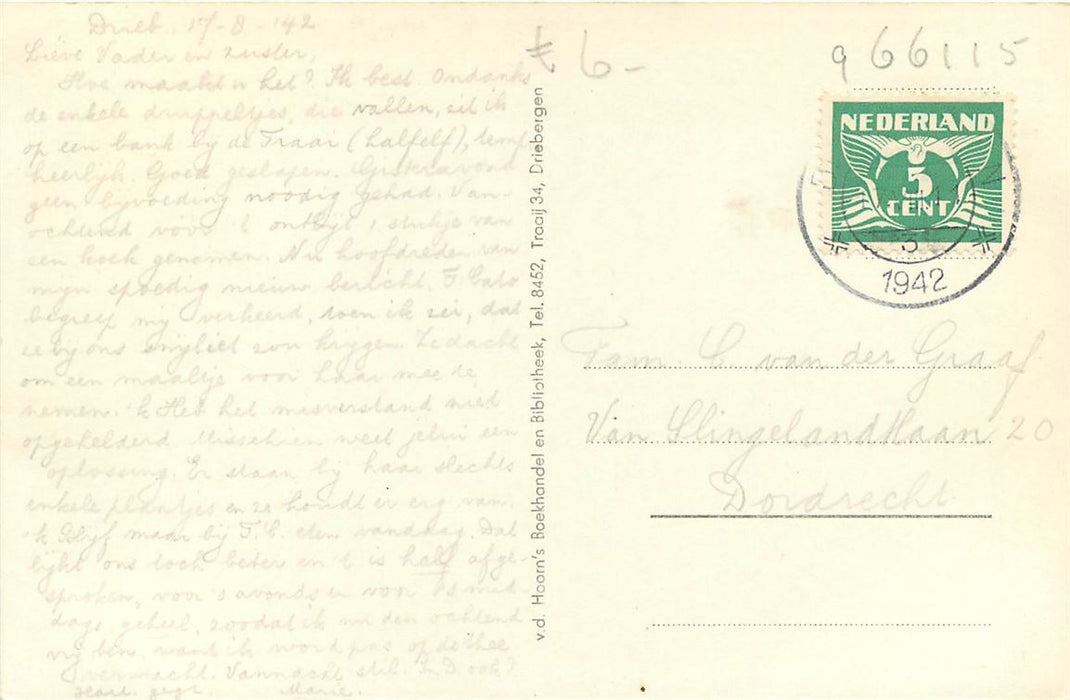 Drieb. 17-8-'42
Lieve Vader en zuster,
Hoe maakt u het? Ik best. Ondanks
de enkele druppeltjes, die vallen, zit ik
op een bank bij de Traai (halfelf), temp
heerlijk. Goed geslapen. Gisteravond
geen bijvoeding noodig gehad. Van-
ochtend vóór 't ontbijt 1 stukje van
een koek genomen. Nu hoofdreden van
mijn spoedig nieuw bericht. T. Cato
begreep mij verkeerd, toen ik zei, dat
ze bij ons ontbijt zou krijgen. Ze dacht
om een maaltje voor haar mee te
nemen. 'k Heb het misverstand niet
opgehelderd. Misschien weet jelui een
oplossing. Er staan bij haar slechts
enkele plantjes en ze houdt er erg van.
'k Blijf maar bij T. C. eten vandaag. Dat
lijkt ons toch beter en 't is half afge-
sproken, voor 's avonds en voor 's mid-
dags geheel, zoodat ik nu den ochtend
vrij ben, want ik word pas op de thee
verwacht. Vannacht stil. In D. ook?
Hart. gegr. Marie.
v.d. Hoorn's Boekhandel en Bibliotheek, Tel. 8452, Traaij 34, Driebergen
6-
966115
NEDERLAND
5
CENT
1942
Fam. C. van der Graaf
Van Slingelandtlaan 20
Dordrecht